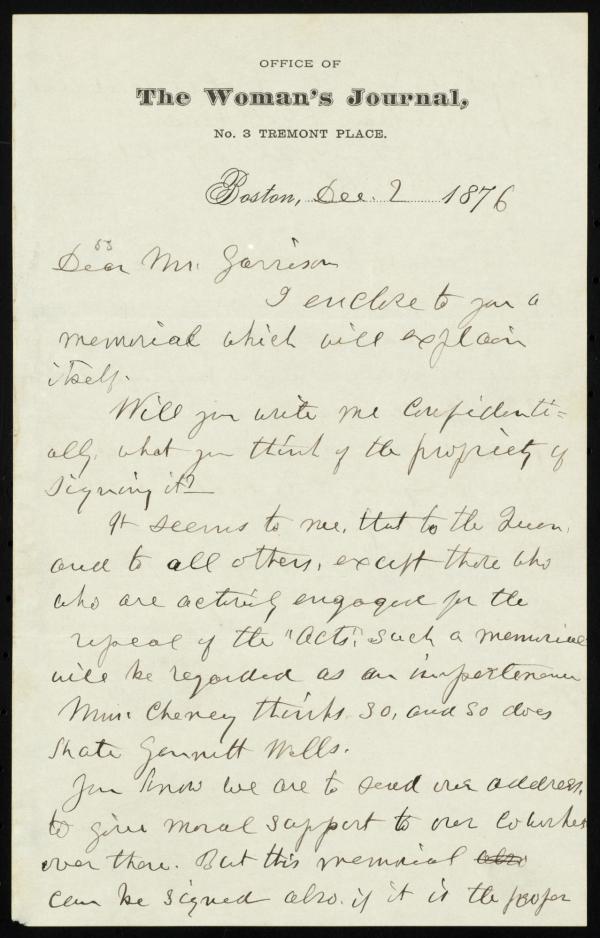 OFFICE OF
The Woman's Journal,
No. 3 TREMONT PLACE.
Boston, Dec. 2 1876
Dear Mr. Garrison
I enclose to you a
memorial which will explain
itself.
Will you write me Confidenti=
ally, what you think of the propriety of
signing it?
It seems to me, that to the Queen,
and to all others, except those who
who are actively engaged for the
repeal of the "Acts", such a memorial
will be regarded as an impertinence
Mrs. Cheney thinks so, and so does
Kate Gannett Wells.
You know we are to send our address,
to give moral support to our Coworkers
over there. But this memorial also
can be signed also. if it is the proper